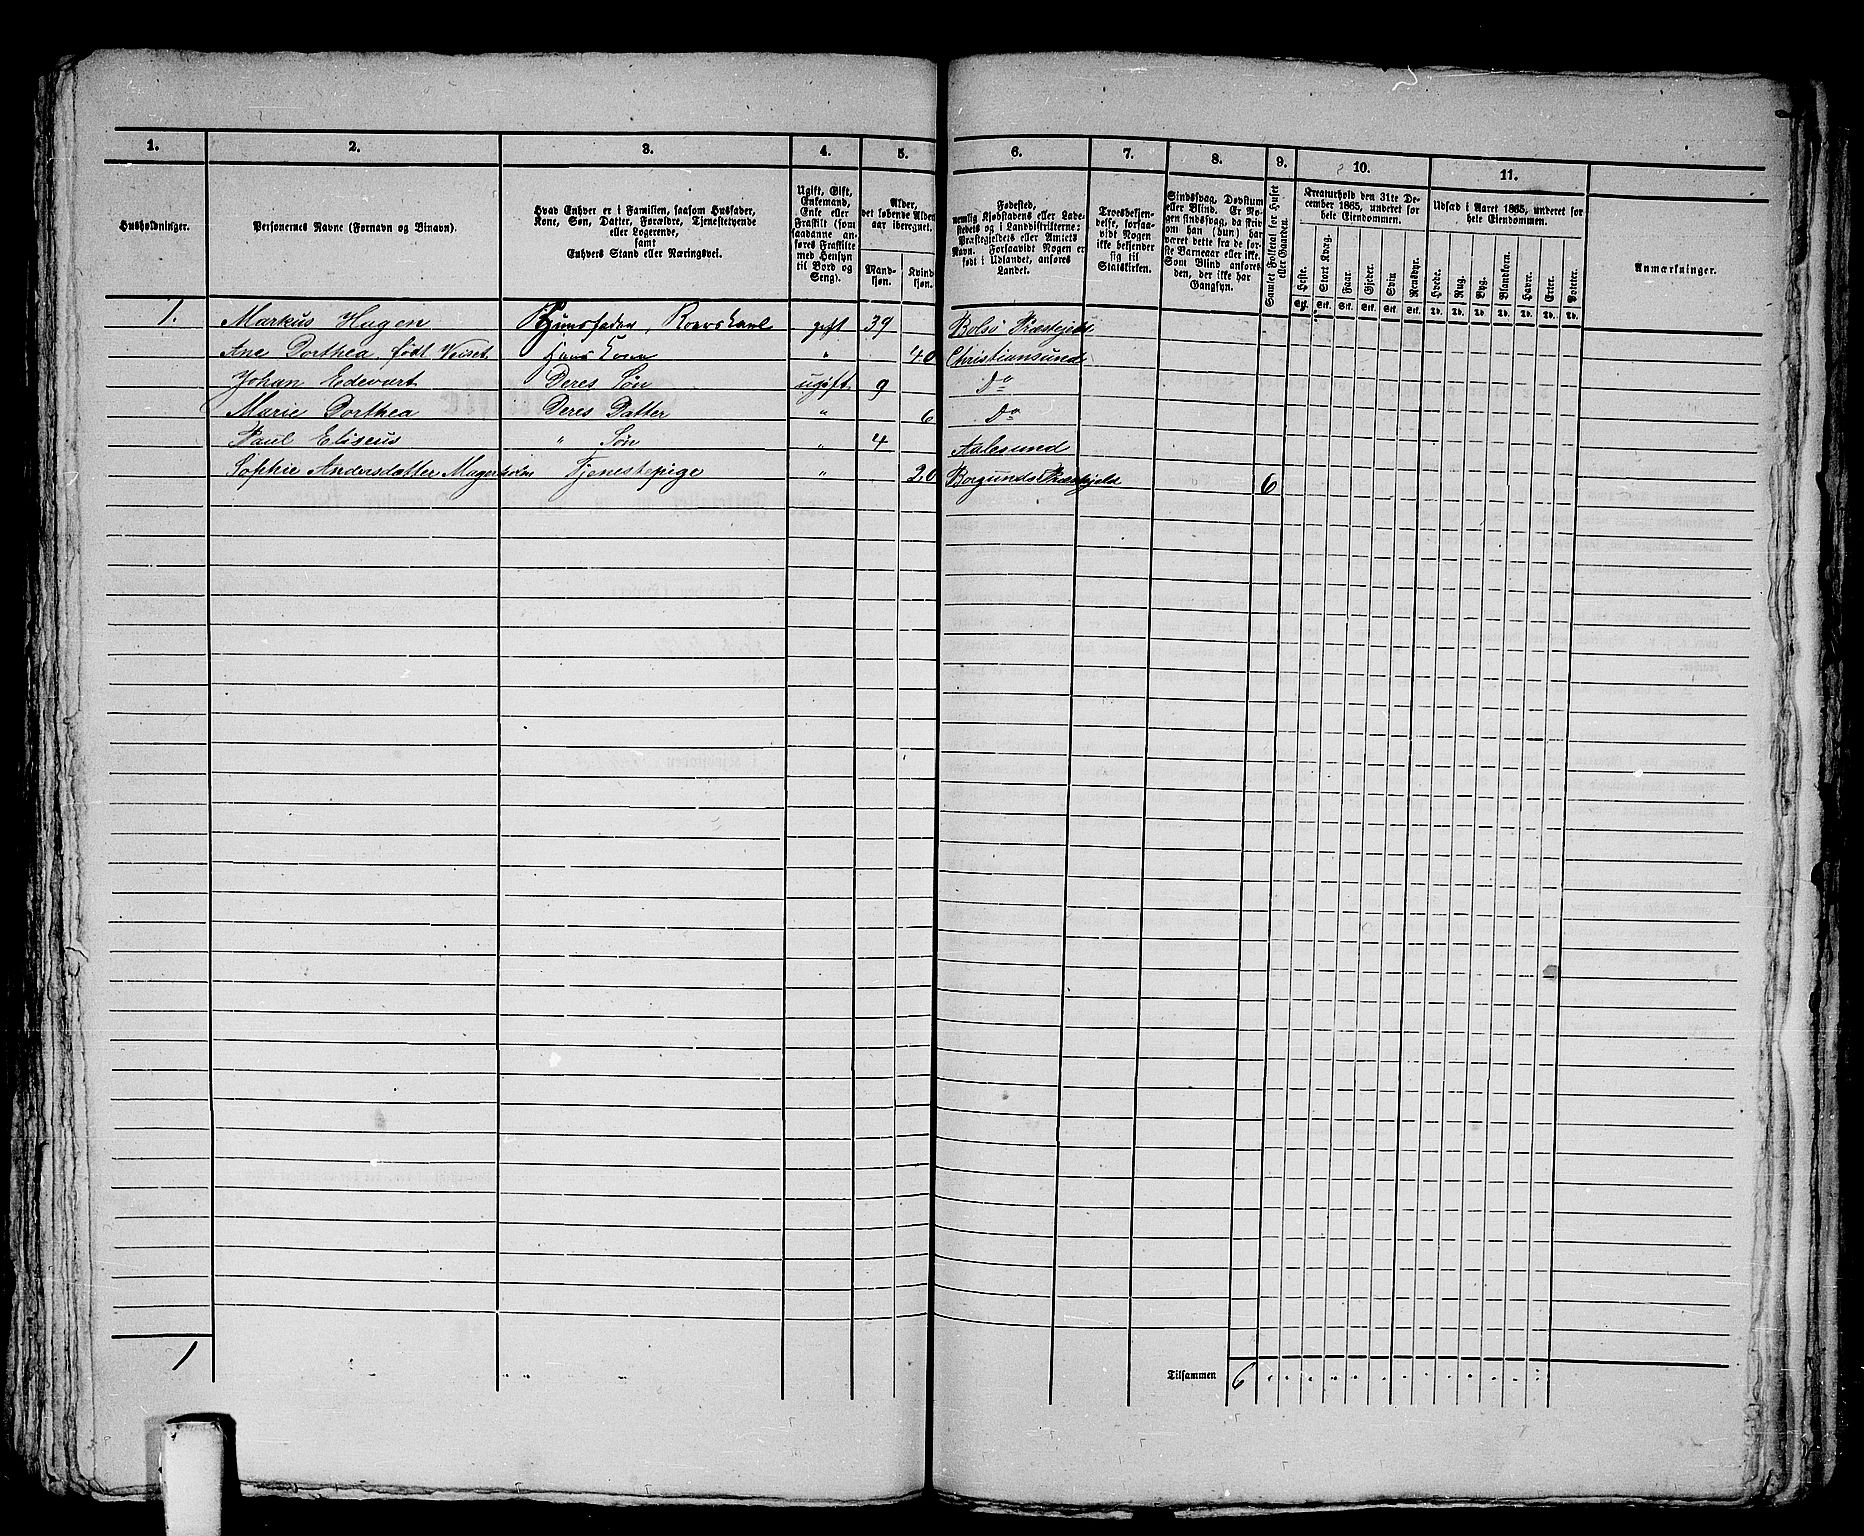 1. 2. 3. 4. 5. 6. 7. 8. 9. 10. 11.
Husholdninger.
Personernes Navne (Fornavn og Binavn).
Hvad Enhver er i Familien, saasom Husfader,
Kone, Søn, Datter, Forældre, Tjenestetyende
eller Logerende,
samt
Enhvers Stand eller Næringsvei.
Ugift, Gift,
Enkemand,
Enke eller
Fraskilt (som
saadanne an-
føres Fraskilte
med Hensyn
til Bord og
Seng).
Alder,
det løbende Alders-
aar iberegnet.
Mand-
kjøn.
Kvind-
kjøn.
Fødested,
nemlig Kjøbstadens eller Lade-
stedets og i Landdistrikterne:
Præstegjeldets eller Amtets
Navn. Forsaavidt Nogen er
født i Udlandet, anføres
Landet.
Troesbekjen-
delse, forsaa-
vidt Nogen
ikke bekjender
sig til
Statskirken.
Sindssvag, Døvstum
eller Blind. Er No-
gen sindssvag, da hvis
om han (hun) har
været dette fra de før-
ste Barneaar eller ikke.
Som Blind anføres
den, der ikke har
Gangsyn.
Samlet Folketal for Huset
eller Gaarden.
Kreaturhold den 31te De-
cember 1865, underet for
hele Eiendommen.
Heste. Stort Kvæg. Faar. Gjeder. Svin. Rensdyr.
Stk. Stk. Stk. Stk. Stk. Stk.
Udsæd i Aaret 1865, underet for
hele Eiendommen.
Hvede. Rug. Byg. Blandkorn. Havre. Erter. Poteter.
Td. Td. Td. Td. Td. Td. Td.
Anmærkninger.
1. Markus Hagen Huusfader, gift 39 Bolsø Præstejeld
Ane Dorthea født Veiset Hans Kone " 40 Christiansund
Johan Edevart Deres Søn ugift 9 Do
Marie Dorthea Deres Datter " 6 Do
Paul Eliseus " Søn " 4 Aalesund
Sophie Andersdatter Magerholm Tjenestepige " 20 Borgunds Præstejeld 6
1
Tilsammen 6